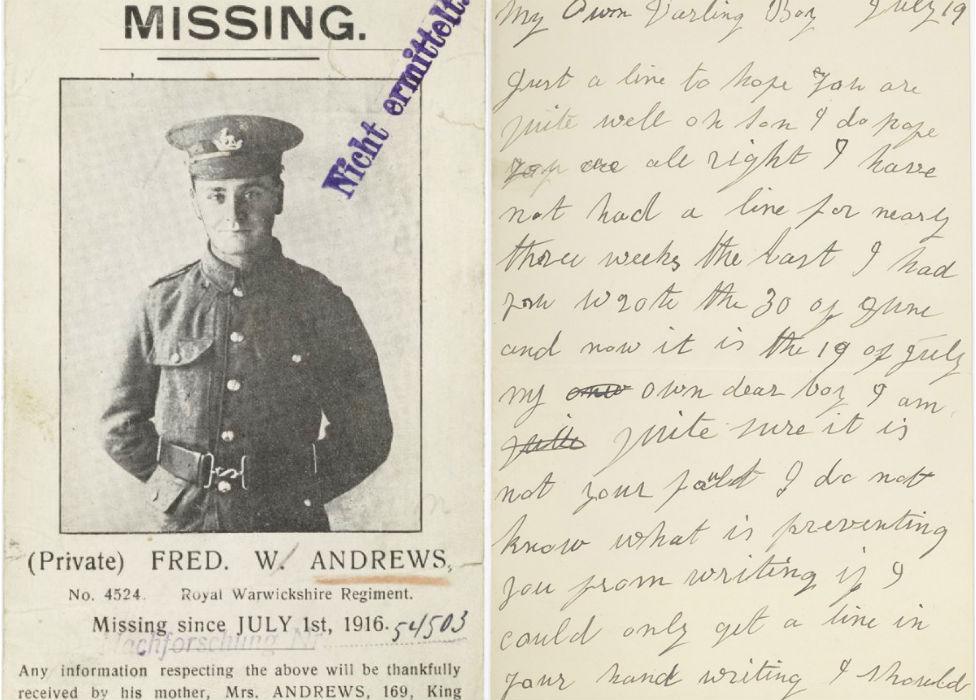 MISSING.
Nicht ermittelt.
(Private) FRED. W. ANDREWS,
No. 4524. Royal Warwickshire Regiment.
Missing since JULY 1st, 1916.
54503
Nachforschung Nr.
Any information respecting the above will be thankfully
received by his mother, Mrs. ANDREWS, 169, King
My Own Darling Boy July 19
Just a line to hope you are
quite well oh son I do hope
you are all right I have
not had a line for nearly
three weeks the last I had
you wrote the 30 of June
and now it is the 19 of July
my own own dear boy I am
quite quite sure it is
not your fault I do not
know what is preventing
you from writing if I
could only get a line in
your hand writing I should